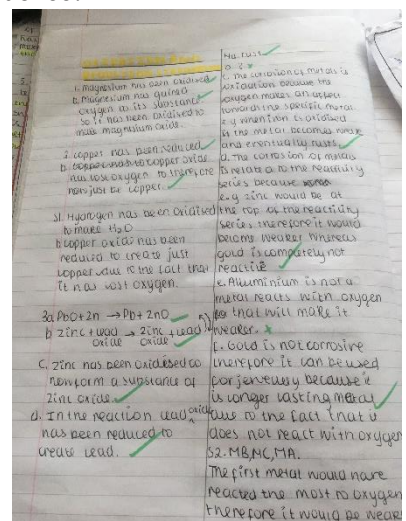 1. Magnesium has been oxidised
b. Magnesium has gained
oxygen to its substance
so it has been oxidised to
make magnesium oxide.
2. copper has been reduced
b. copper oxide
has lost oxygen to therefore
now just be copper.
Hydrogen has been oxidised
to make H2O
b copper oxide has been
reduced to create just
copper due to the fact that
it has lost oxygen.
3a PbO+Zn → Pb+ZnO
b zinc + lead → zinc + lead
oxide oxide
C. Zinc has been oxidised to
now form a substance of
zinc oxide.
d. In the reaction lead oxide
has been reduced to
create lead.
4a. rust
c. The corrosion of metals is
oxidation because the
oxygen makes an affect
towards the specific metal
e.g when iron is oxidised
the metal becomes weak
and eventually rusts.
d. The corrosion of metals
is related to the reactivity
series because
e.g zinc would be at
the top of the reactivity
series therefore it would
become weaker whereas
gold is completely not
reactive
e. Alluminium is not a
metal reacts with oxygen
so that will make it
weaker.
f. Gold is not corrosive
therefore it can be used
for jewellery because it
is longer lasting metal
due to the fact that it
does not react with oxygen
S2. MB, MC, MA.
The first metal would have
reacted the most to oxygen
therefore it would be weaker